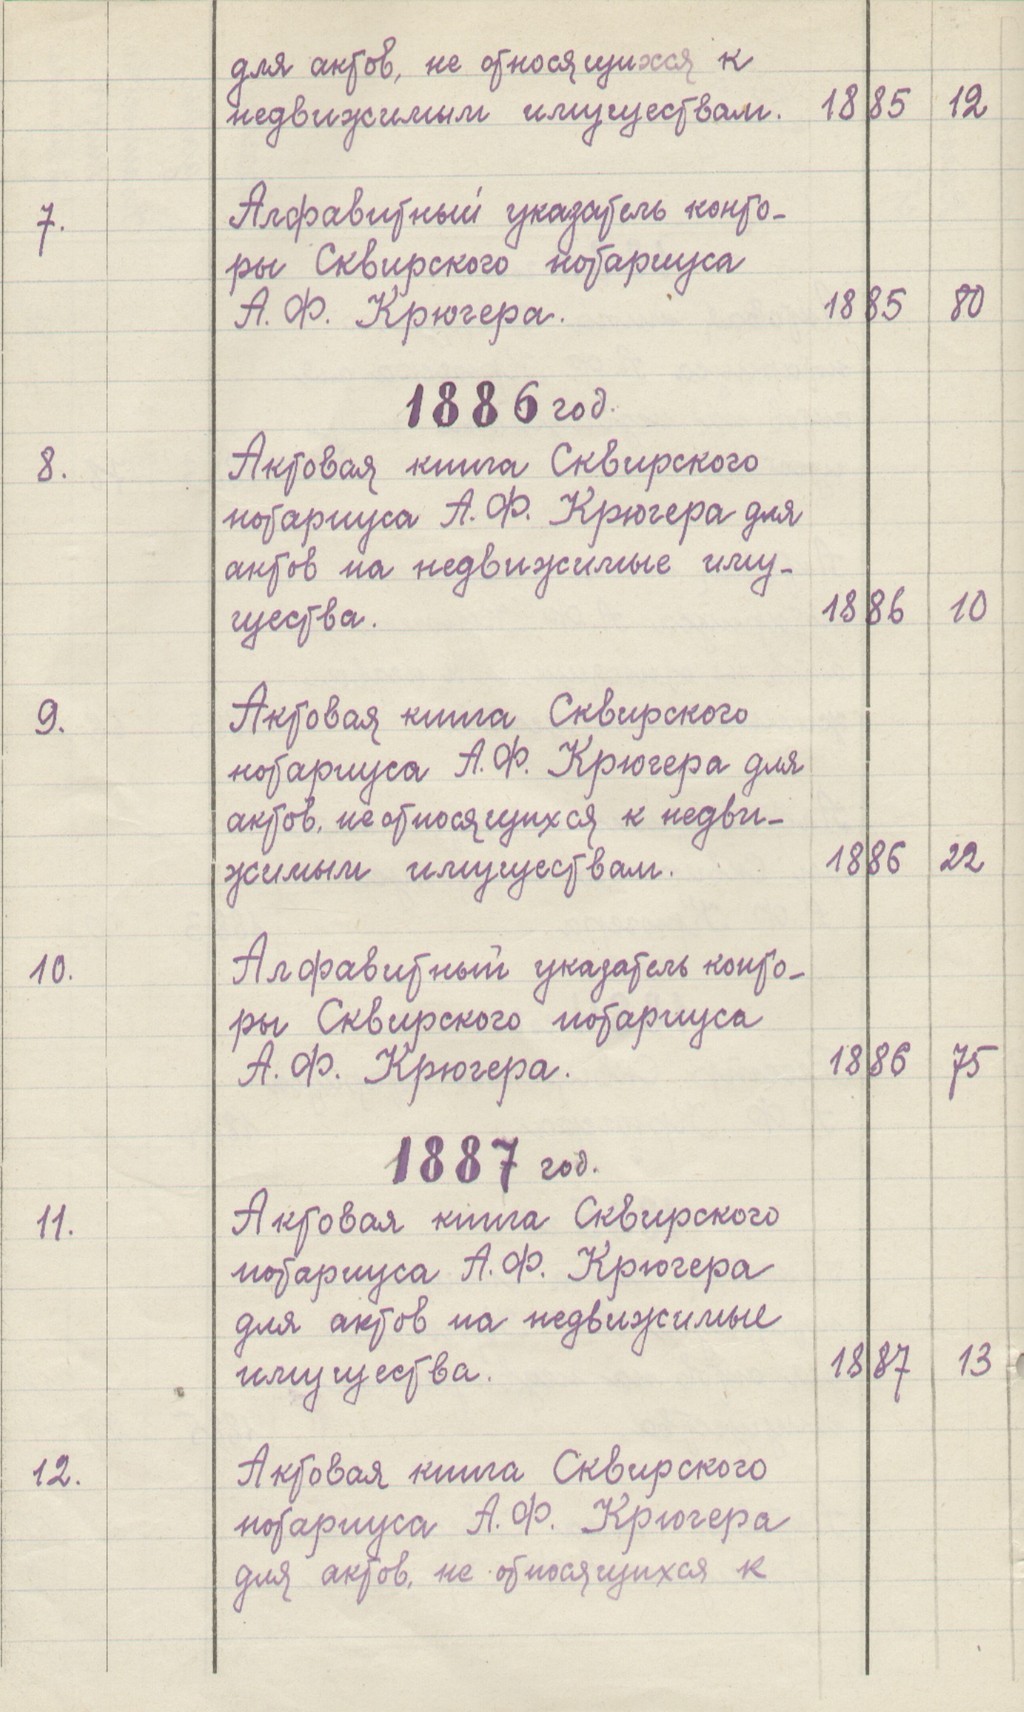 для актов, не относящихся к
недвижимым имуществам. 1885 12
7. Алфавитный указатель конто-
ры Сквирского нотариуса
А. Ф. Крюгера. 1885 80
1886 год.
8. Актовая книга Сквирского
нотариуса А. Ф. Крюгера для
актов на недвижимые иму-
щества. 1886 10
9. Актовая книга Сквирского
нотариуса А. Ф. Крюгера для
актов, не относящихся к недви-
жимым имуществам. 1886 22
10. Алфавитный указатель конто-
ры Сквирского нотариуса
А. Ф. Крюгера. 1886 75
1887 год.
11. Актовая книга Сквирского
нотариуса А. Ф. Крюгера
для актов на недвижимые
имущества. 1887 13
12. Актовая книга Сквирского
нотариуса А. Ф. Крюгера
для актов, не относящихся к